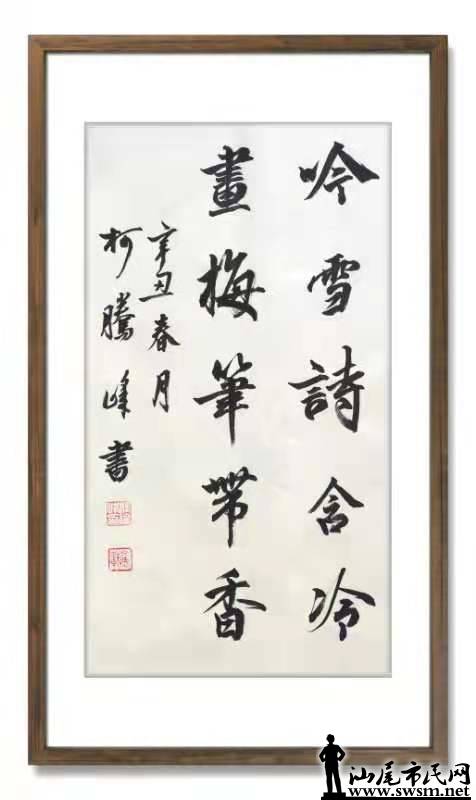 吟雪詩含冷
畫梅筆帶香
辛丑春月
柯騰峰書
汕尾市民网
www.swsm.net